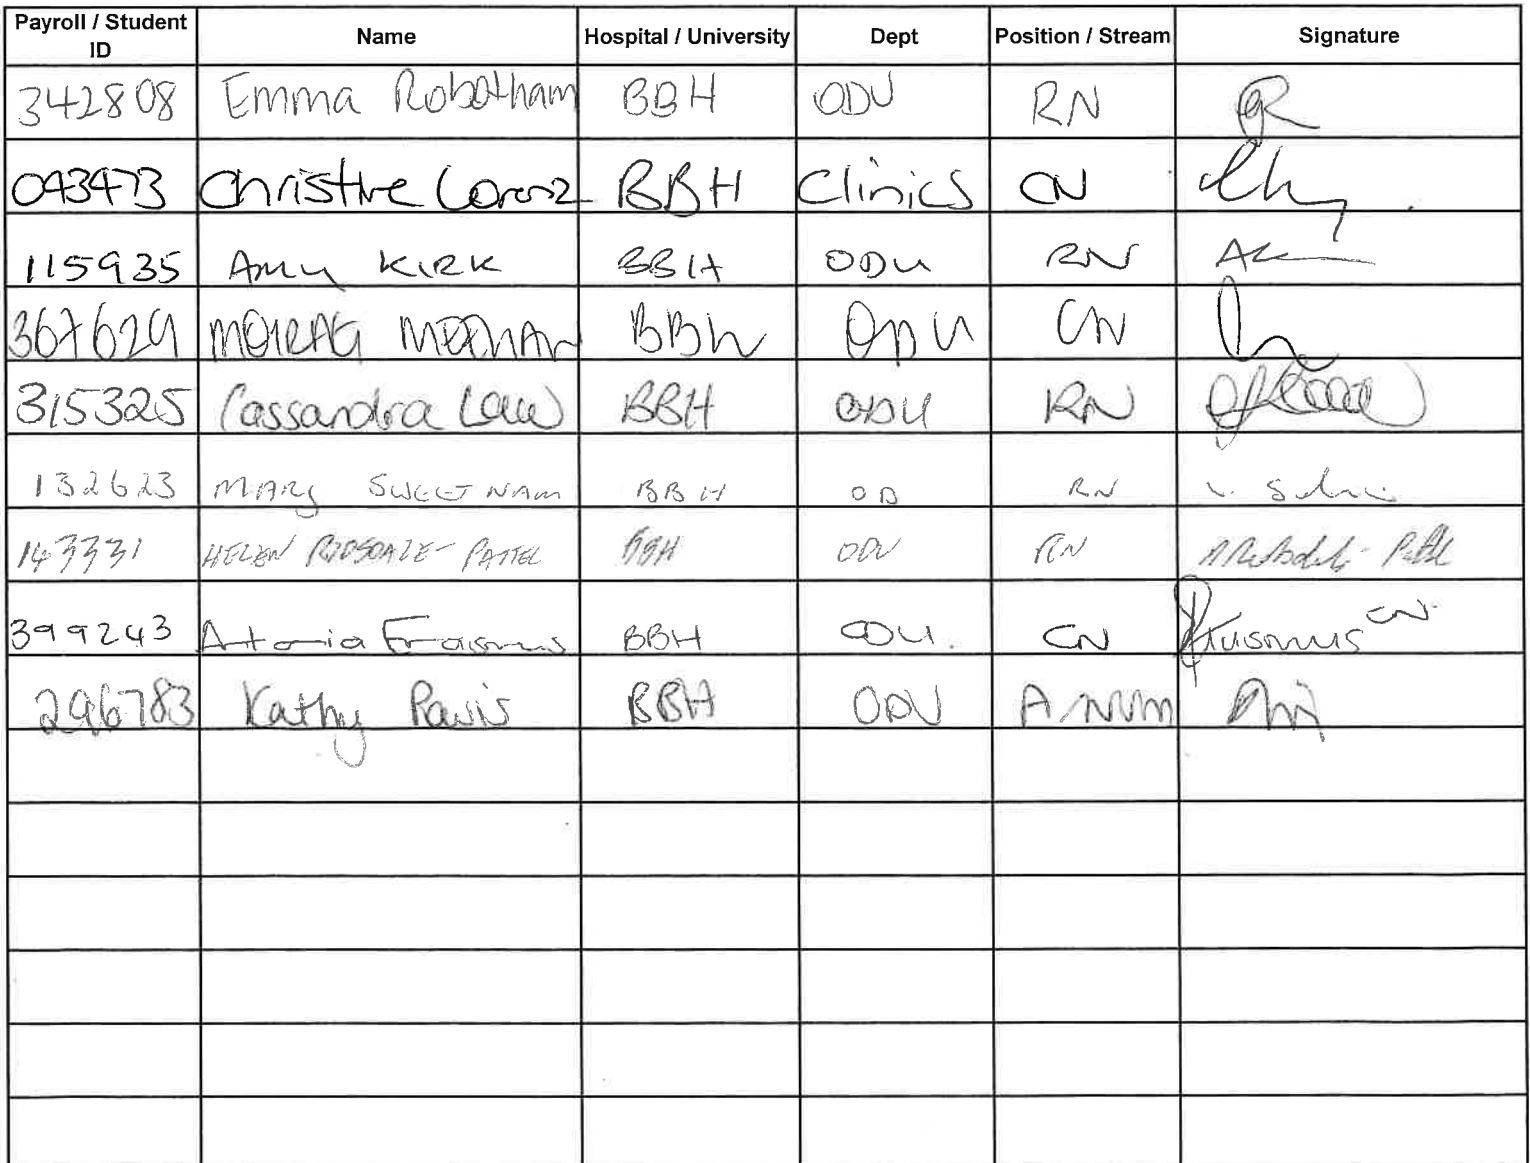 Payroll / Student ID Name Hospital / University Dept Position / Stream Signature
342808 Emma Robotham BBH ODU RN
043473 Christine BBH Clinics CN
115935 Amy KIRK BBH ODU RN
367629 MOIRAG BBH ODU CN
315325 Cassandra Law BBH ODU RN
132623 MARY SWEETNAM BBH OD RN
143331 HELEN RIDSDALE-PATTEL BBH ODU RN
399243 Antonia Erasmus BBH ODU. CN Erasmus CN
296783 Kathy BBH ODU ANUM